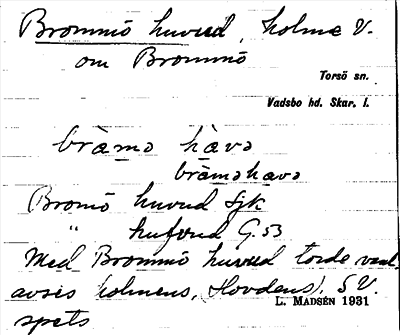 Brommö huvud, holme V.
om Brommö
Torsö sn.
Vadsbo hd. Skar. l.
bràmə hàvə
bràməhavə
Bromö huvud Sjk
" hufvud G.53
Med Brommö huvud torde vanl.
avses holmens, (Hovdens), SV.
L. MADSÉN 1931
spets